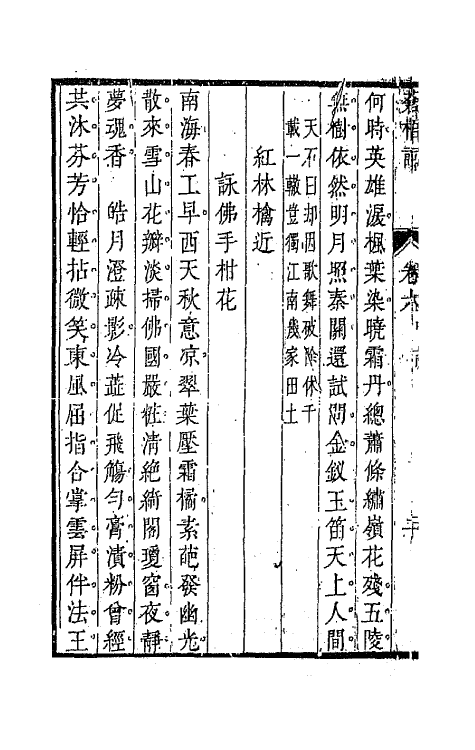 何時英雄淚楓葉染曉霜丹總蕭條繡嶺花殘五陵
無樹依然明月照秦關還試問金釵玉笛天上人間
天石曰却因歌舞破除休千
載一轍豈獨江南幾家田土
紅林檎近
詠佛手柑花
南海春工早西天秋意凉翠葉壓霜橘素葩發幽光
散來雪山花瓣淡掃佛國嚴粧清絶綺閣瓊窗夜靜
夢魂香 皓月澄疎影冷蕋促飛觴勻膏漬粉曾經
共沐芬芳恰輕拈微笑東風屈指合掌雲屏伴法王
卷六